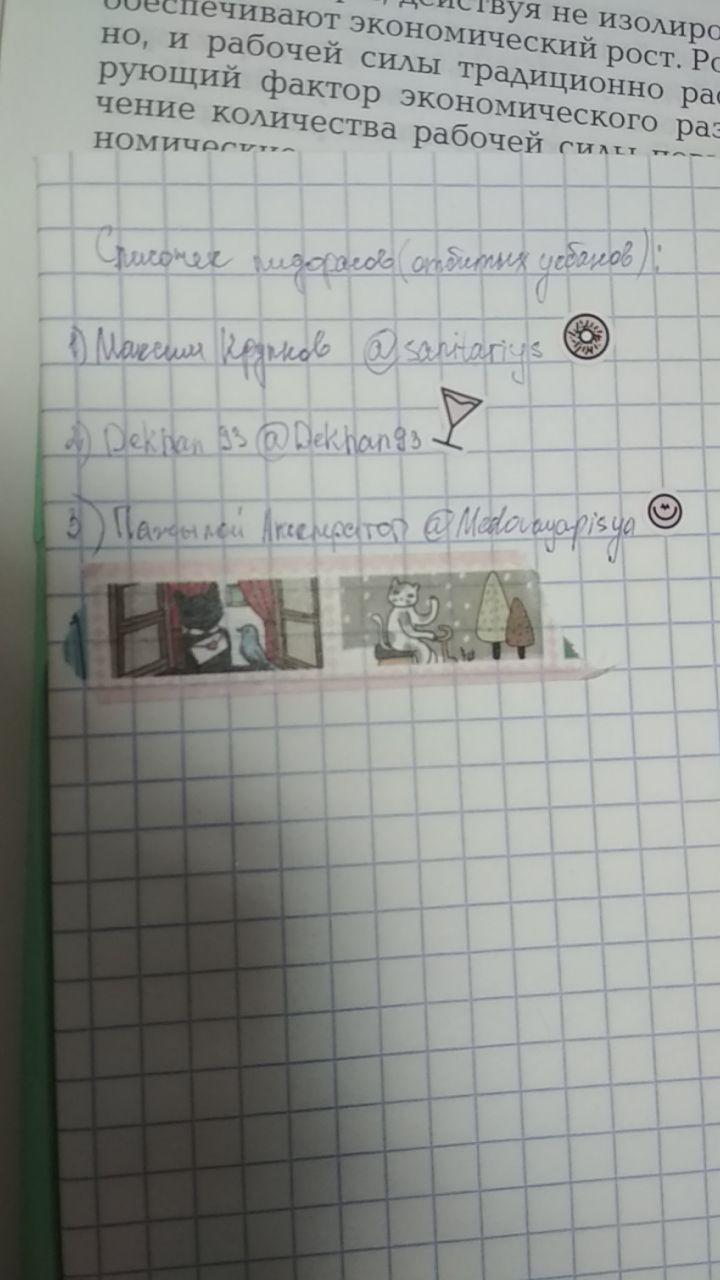 действуя не изолиро
обеспечивают экономический рост. Ро
но, и рабочей силы традиционно рас
рующий фактор экономического раз
чение количества рабочей силы
номические
Списочек пидорасов (отбитых уебанов):
1) Максим Крупков @sanitariys
2) Dekhan 93 @Dekhan93
3) @Medovayapisya